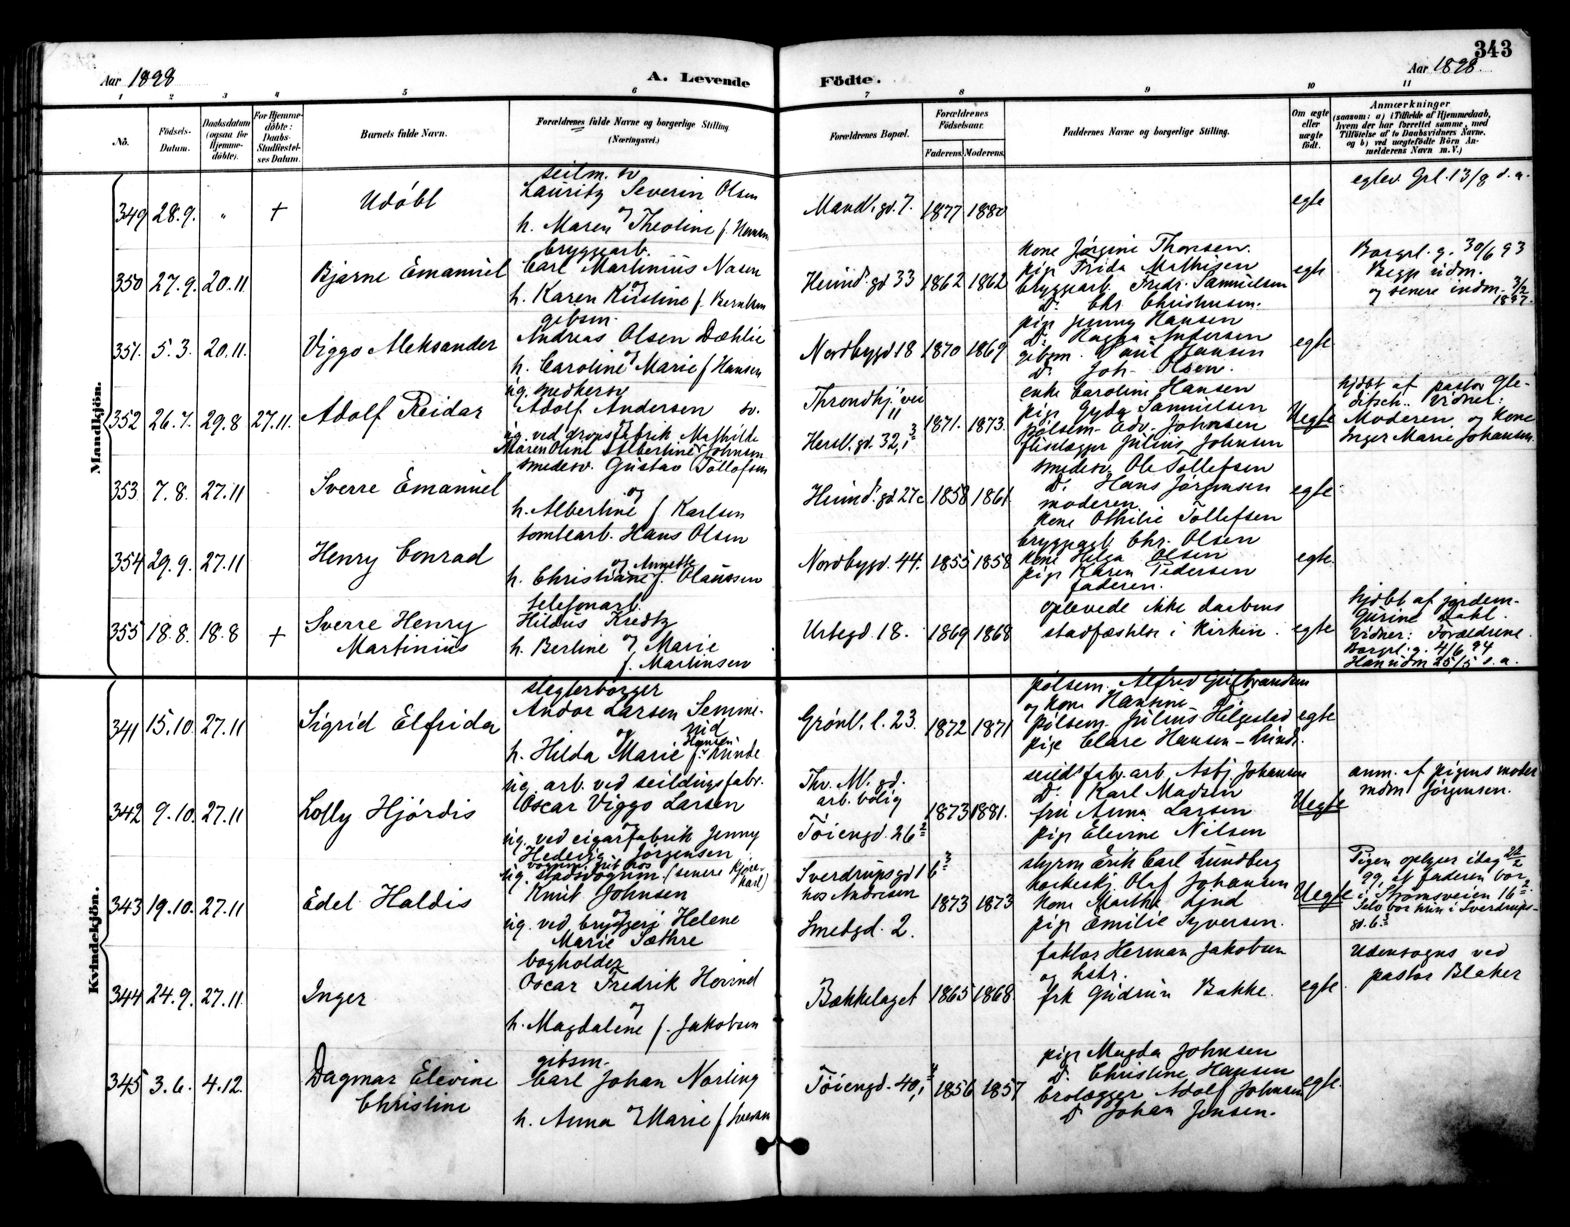 343
Aar 1898
A. Levende
Födte.
Aar 1898.
1 2 3 4 5 6 7 8 9 10 11
No.
Födsels-Datum.
Daabsdatum (ogsaa for Hjemme-döbte).
For Hjemme-döbte: Daabs-Stadfæstel-ses Datum.
Barnets fulde Navn.
Forældrenes fulde Navne og borgerlige Stilling (Næringsvei.)
Forældrenes Bopæl.
Forældrenes Födselsaar.
Faderens. Moderens.
Faddernes Navne og borgerlige Stilling.
Om ægte eller uægte födt.
Anmærkninger
(saasom: a) i Tilfælde af Hjemmedaab, hvem der har forrettet samme, med Tilföielse af to Daabsvidners Navne. og b) ved uægtefödte Börn An-melderens Navn m. V.)
Mandkjön.
349 28.9. " +
Udöbt
seilm. sv
Lauritz Severin Olsen
og
h. Maren Theoline f.
Mandl. gd. 7.
1877 1880
egte
350 27.9. 20.11
Bjarne Emanuel
bryggearb.
Carl Martinius Næsen
og
h. Karen Kirstine f. Berntsen
Heimd. gd 33
1862 1862
kone Jörgine Thorsen.
pige Frida Mathisen
bryggearb. Fredr. Samuelsen
Do. Chr. Christensen.
egte
Borgvl. g. 30/6 93
Begge udm.
og senere indm. 3/2 1897.
351. 5.3. 20.11.
Viggo Aleksander
gibsm.
Andreas Olsen Dæhlie
og
h. Caroline Marie f Hansen
Nordbygd 18
1870 1869
pige Jenny Hansen
Do. Ragna Andersen
gibsm. Paul Hansen
Do. Joh. Olsen.
egte
352 26.7. 29.8 27.11.
Adolf Reidar
ug. smedkersv
Adolf Andersen sv.
ug. ved dropsfabrik Mathilde
Maren Oline Albertine Johnsen
Throndhj. vei 11
Hersl. gd. 32,
1871. 1873.
enke Caroline Hansen
pige Gyda Samuelsen
pölsem. Adv. Johnsen
fliselægger Julius Johnsen
Uegte
hjdbt af pastor Gle-
ditsch. Vidner:
Moderen og kone
Inger Marie Johansen
353 7.8. 27.11
Sverre Emanuel
smedesv. Gustav Tollofsen
og
h. Albertine f Karlsen
Heimd. gd 27c
1858 1861
smedesv Ole Tollefsen
Do. Hans Jörgensen
moderen.
kone Othilie Tollefsen
egte
354 29.9. 27.11
Henry Conrad
tomtearb. Hans Olsen
og Annette
h. Christiane f. Olaussen
Nordbygd. 44.
1855 1858
bryggearb Chr. Olsen
kone Helga Olsen
pige Karen Pedersen
faderen.
egte.
355 18.8. 18.8 +
Sverre Henry
Martinius
telefonarb.
Hildus Kredtz
og
h. Berline Marie
f. Martinsen
Urtegd. 18.
1869 1868
oplevede ikke daabens
stadfæstelse i kirken.
egte
hjdbt af jordem.
Gurine Dahl.
Vidner: Forældrene.
Borgvl. g. 4/6 94
Han udm 25/5 s.a.
Kvindekjön.
341 15.10. 27.11
Sigrid Elfrida
slagterborger
Andor Larsen Semme-
rud
og
h. Hilda Marie f. Hansen Lunde
Grönl. l. 23.
1872 1871
pölsem. Alfred Gulbrandsen
og kone Hansine
pölsem. Julius Helgestad
pige Clare Hansen - Lunde.
egte
342 9.10. 27.11
Lolly Hjördis
ug. arb. ved seildugsfabr.
Oscar Viggo Larsen
og
ug. ved cigarfabrik Jenny
Hedevig Jörgensen
Thv. M. gd.
arb. bolig
Töiengd. 26
1873 1881.
seild fabr. arb. Asbj. Johansen
Do. Karl Madsen
fru Anna Larsen
pige Elevine Nilsen
Uegte
anm. af pigens moder
mdm Jörgensen.
343 19.10. 27.11
Edel Haldis
ug. stadsvognm. (senere kjöre-karl)
Knut Johnsen
og
ug. ved bryggeri Helene
Marie Sæthre
Sverdrupsgd 16
hos Andresen
Smedgd. 2.
1873 1873
styrm Erik Carl Lundberg
Olaf Johansen
kone Marthe Lund
pige Emilie Syversen.
Uegte
Pigen oplyser idag
99, at faderen bor
i Strömsveien 16
Selv bor hun i Sverdrups-
gd. 6
344 24.9. 27.11.
Inger
bogholder
Oscar Fredrik Hovind
og
h. Magdalene f. Jakobsen
Bækkelaget
1865 1868.
faktor Herman Jakobsen
og hstr.
frk Gudrun Bakke.
egte.
Udensogns ved
pastor Blaker
345 3.6. 4.12.
Dagmar Elevine
Christine
gibsm.
Carl Johan Norling
og
h. Anna Marie f Iversen
Töiengd. 40,
1856 1857
pige Magda Johnsen
Do. Christine Hansen
brolægger Adolf Johnsen
Do Johan Jensen.
egte.